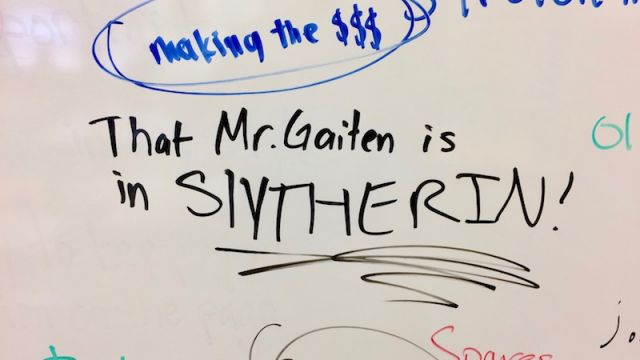 making the $$$
That Mr. Gaiten is
in SLYTHERIN!